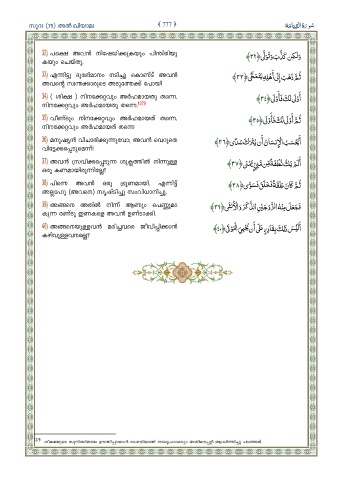 സൂറ: (75) അൽ ഖിയാമഃ
﴾ 777 ﴿
سورة القيامة
32) പക്ഷെ അവൻ നിഷേധിക്കുകയും പിന്തിരിയു
കയും ചെയ്തു.
وَلَٰكِن كَذَّبَ وَتَوَلَّىٰ ﴿٣٢﴾
33) എന്നിട്ടു ദുരഭിമാനം നടിച്ചു കൊണ്ട് അവൻ
അവന്റെ സ്വന്തക്കാരുടെ അടുത്തേക്ക് പോയി
ثُمَّ ذَهَبَ إِلَىٰ أَهْلِهِ يَتَمَطَّىٰ ﴿٣٣﴾
34) ( ശിക്ഷ ) നിനക്കേറ്റവും അർഹമായതു തന്നെ.
നിനക്കേറ്റവും അർഹമായതു തന്നെ.
أَوْلَىٰ لَكَ فَأَوْلَىٰ ﴿٣٤﴾
35) വീണ്ടും നിനക്കേറ്റവും അർഹമായത് തന്നെ.
നിനക്കേറ്റവും അർഹമായത് തന്നെ
ثُمَّ أَوْلَىٰ لَكَ فَأَوْلَىٰ ﴿٣٥﴾
36) മനുഷ്യൻ വിചാരിക്കുന്നുവോ; അവൻ വെറുതെ
വിട്ടേക്കപ്പെടുമെന്ന്!
أَيَحْسَبُ الْإِنسَانُ أَن يُتْرَكَ سُدًى ﴿٣٦﴾
37) അവൻ സ്രവിക്കപ്പെടുന്ന ശുക്ലത്തിൽ നിന്നുള്ള
ഒരു കണമായിരുന്നില്ലേ?
أَلَمْ يَكُ نُطْفَةً مِّن مَّنِيٍّ يُمْنَىٰ ﴿٣٧﴾
38) പിന്നെ അവൻ ഒരു ഭ്രൂണമായി. എന്നിട്ട്
അല്ലാഹു (അവനെ) സൃഷ്ടിച്ചു സംവിധാനിച്ചു.
ثُمَّ كَانَ عَلَقَةً فَخَلَقَ فَسَوَّىٰ ﴿٣٨﴾
39) അങ്ങനെ അതിൽ നിന്ന് ആണും പെണ്ണുമാ
കുന്ന രണ്ടു ഇണകളെ അവൻ ഉണ്ടാക്കി.
فَجَعَلَ مِنْهُ الزَّوْجَيْنِ الذَّكَرَ وَالْأُنثَىٰ ﴿٣٩﴾
40) അങ്ങനെയുള്ളവൻ മരിച്ചവരെ ജീവിപ്പിക്കാൻ
കഴിവുള്ളവനല്ലെ?
أَلَيْسَ ذَٰلِكَ بِقَادِرٍ عَلَىٰ أَن يُحْيِيَ الْمَوْتَىٰ ﴿٤٠﴾